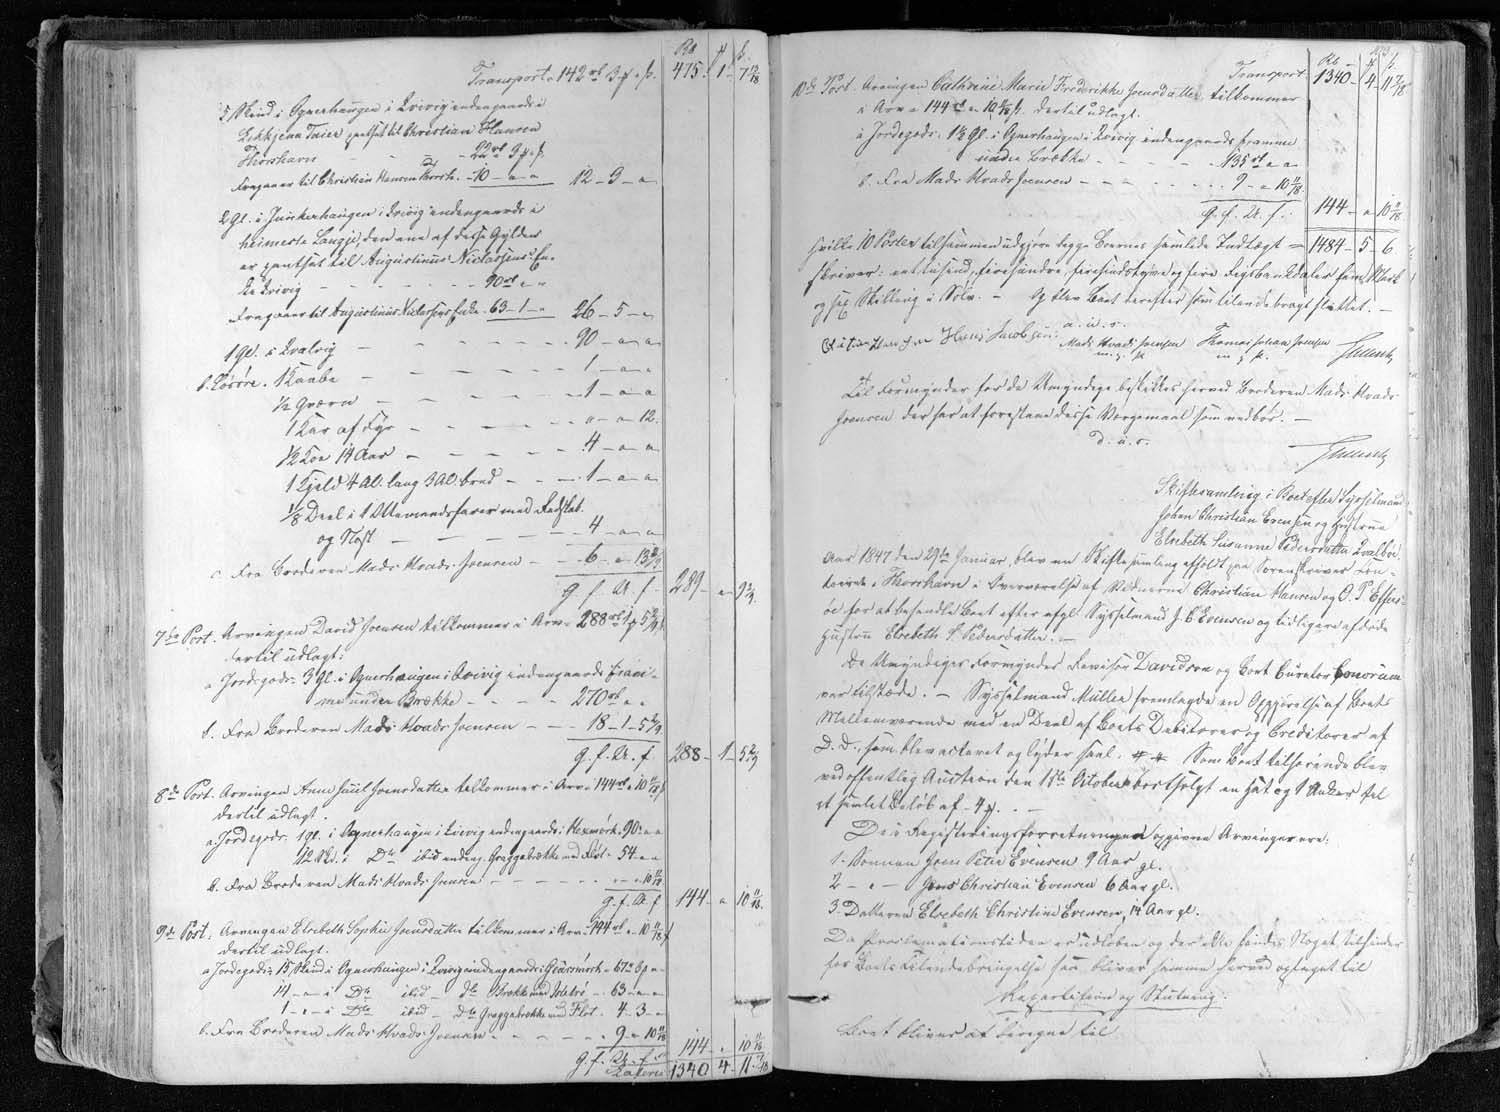 Rd ₰ ß
Transport 142 rd 3 ₰ " ß. 475. 1 - 7 13/18
5 Skind i Ognerhaugen i Qvivig indengaards i
Lekkjena Taier pantsat til Christian Hansen
Thorshavn - - 22 rd 3 ₰ " ß.
fragaaer til Christian Hansen Thorsh. - 10 - " - " 12 - 3 - "
2 Gl. i Junkerhaugen i Qvivig indengaards i
heimesta Laugje, den ene af disse Gylden
er pantsat til Augustinus Niclassens En-
ke Qvivig - - - - - 90 rd " "
fragaaer til Augustinus Niclassens Enke. 63 - 1 - " 26 - 5 - "
1 Gl. i Qvalvig - - - - 90 - " - "
b. Løsøre. 1 Kaabe - - - - 1 - " - "
1/2 Qværn - - - - 1 - " - "
1 Kar af Fyr - - - - " - " - 12.
1/2 Koe 14 Aar - - - - 4 - " - "
1 Tjeld 4 Al. lang 3 Al. bred - - 1 - " - "
1/8 Deel i 1 Ottemandsfarer med Redskab
og Nøst - - - - 4 - " - "
c. Fra Broderen Mads Hvads Joensen - 6 - " 13 2/9
g. f. U. f. 289 - " - 9 2/9.
7de Post. Arvingen David Joensen tilkommer i Arv 288 rd 1 ₰ 5 2/9 ß
dertil udlagt:
a Jordegods: 3 Gl. i Ognerhaugen i Qvivig indengaards fram-
me under Brække - - - 270 rd " "
b. Fra Broderen Mads Hvads Joensen - - 18 - 1 - 5 2/9.
g. f. U. f 288 - 1 - 5 2/9
8de Post. Arvingen Anne Joensdatter tilkommer i Arv 144 rd " 10 11/18 ß
dertil udlagt.
a. Jordegods. 1 gl. i Ognerhaugen i Qvivig indengaards: Hexmørk. 90 " "
12 Sk. i Do ibid indeng. Graggebrække med Fløt - 54 - " "
b. Fra Broderen Mads Hvads Joensen - - - - " - " 10 11/18
g. f. U. f 144 - " 10 11/18.
9de Post. Arvingen Elsebeth Sophie Joensdatter tilkommer i Arv 144 rd " 10 11/18 ß
dertil udlagt.
a Jordegods: 15 Skind i Ognerhaugen i Qvivig indengaards: - 67 " 3 ₰ "
14 - " i Do ibid - do Brække med - 63 - " "
1 - " - i Do ibid - do Graggebrække med Fløt. 4 - 3 - "
b. Fra Broderen Mads Hvads Joensen - - - 9 " 10 11/18
g. f. U. f. 144 - " 10 11/18.
Lateris 1340 4 - 11 7/18
Rd ₰ ß.
Transport 1340 - 4 - 11 7/18
10de Post. Arvingen Cathrine Marie Frederikke Joensdatter tilkommer
i Arv 144 rd " 10 11/18 ß. dertil udlagt.
a Jordegods: 1 1/2 Gl. i Ognerhaugen i Qvivig indengaards framme
under Brække - - - - 135 rd " "
b. Fra Mads Hvads Joensen - - - - 9 - " 10 11/18.
g. f. U. f. 144 - " 10 11/18
hvilke 10 Poster tilsammen udgjøre begge Boernes samlede Indtægt = 1484 - 5 - 6
skriver: eet tusind, firehundre, firesindstyve og fire Rigsbankdaler fem Mark
og sex Skilling i Sølv. - Og blev Boet derefter som tilendebragt sluttet. -
a. u. s.
Christian Hansen Hans Jacobsen: Mads Hvads Joensen Thomas Johan Joensen
m. f. P. m. f. P.
Til Formynder for de Umyndige beskikkes herved Broderen Mads Hvads
Joensen der har at forestaae disse Værgemaal som vedbør. -
d. u. s.
Skiftesamling i Boet efter Sysselmand
Johan Christian Evensen og Hustrue
Elsebeth Susanne Pedersdatter Qvalbøe
Aar 1847 den 29de Januar blev en Skiftesamling afholdt paa Sorenskriver Con-
toiret i Thorshavn i Overværelse af Vidnerne Christian Hansen og O. P. Effers-
øe for at behandle Boet efter afgl. Sysselmand J. C. Evensen og tidligere afdøde
Hustru Elsebeth S. Pedersdatter. -
De Umyndiges Formynder Revisor Davidson og Boets Curator bonorum
var tilstede. - Sysselmand Müller fremlagde en Opgjørelse af Boets
Mellemværende med en Deel af Boets Debitorer og Creditorer af
D. D., som blev acteret og lyder saal: # # Som Boet tilhørende blev
ved offentlig Auction den 18de October bortsolgt en Hat og 1 Anker til
et samlet Beløb af - 4 ₰. -
De i Registeringsforretningen opgivne Arvinger ere:
1. Sønnen Jens Peter Evensen 9 Aar gl.
2 - " - Jens Christian Evensen 6 Aar gl.
3. Datteren Elsebeth Christine Evensen, 14 Aar gl.
Da Proclamationstiden er udløben og der ikke findes Noget til hinder
for Boets Tilendebringelse saa bliver samme herved optaget til
Repartition og Slutning:
Boet bliver at beregne til